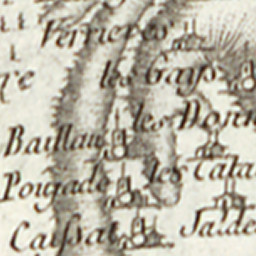 Verrieres
les Gays
les Donn
Baillau
Pougade
les Cala
Caissat